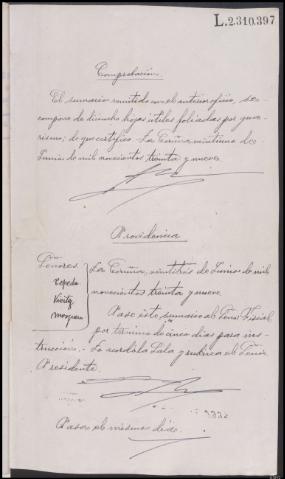 L.2.310.397
Comprobación.
El sumario remitido con el anterior oficio, se com-
pone de dieciocho hojas útiles foliadas por gua-
rismo; de que certifico. La Coruña
Junio de mil novecientos treinta y nueve.
Providencia
Señores
Cepeda
La Coruña, veintitrés de Junio de mil
novecientos treinta y nueve.
Pase este sumario al Señor Fiscal
por término de cinco días para ins-
trucción.- Lo acordó la Sala y rubrica el Señor
Presidente.
Pasa el mismo día.